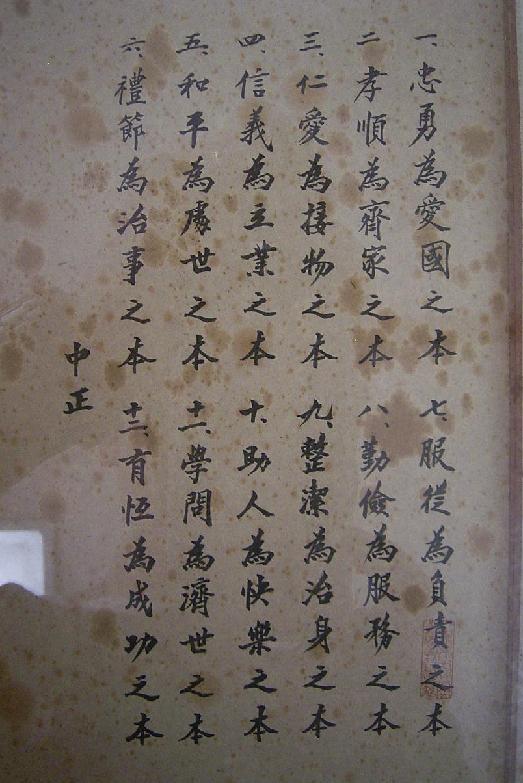 一、忠勇為愛國之本
二、孝順為齊家之本
三、仁愛為接物之本
四、信義為立業之本
五、和平為處世之本
六、禮節為治事之本
七、服從為負責之本
八、勤儉為服務之本
九、整潔為治身之本
十、助人為快樂之本
十一、學問為濟世之本
十二、有恆為成功之本
中正